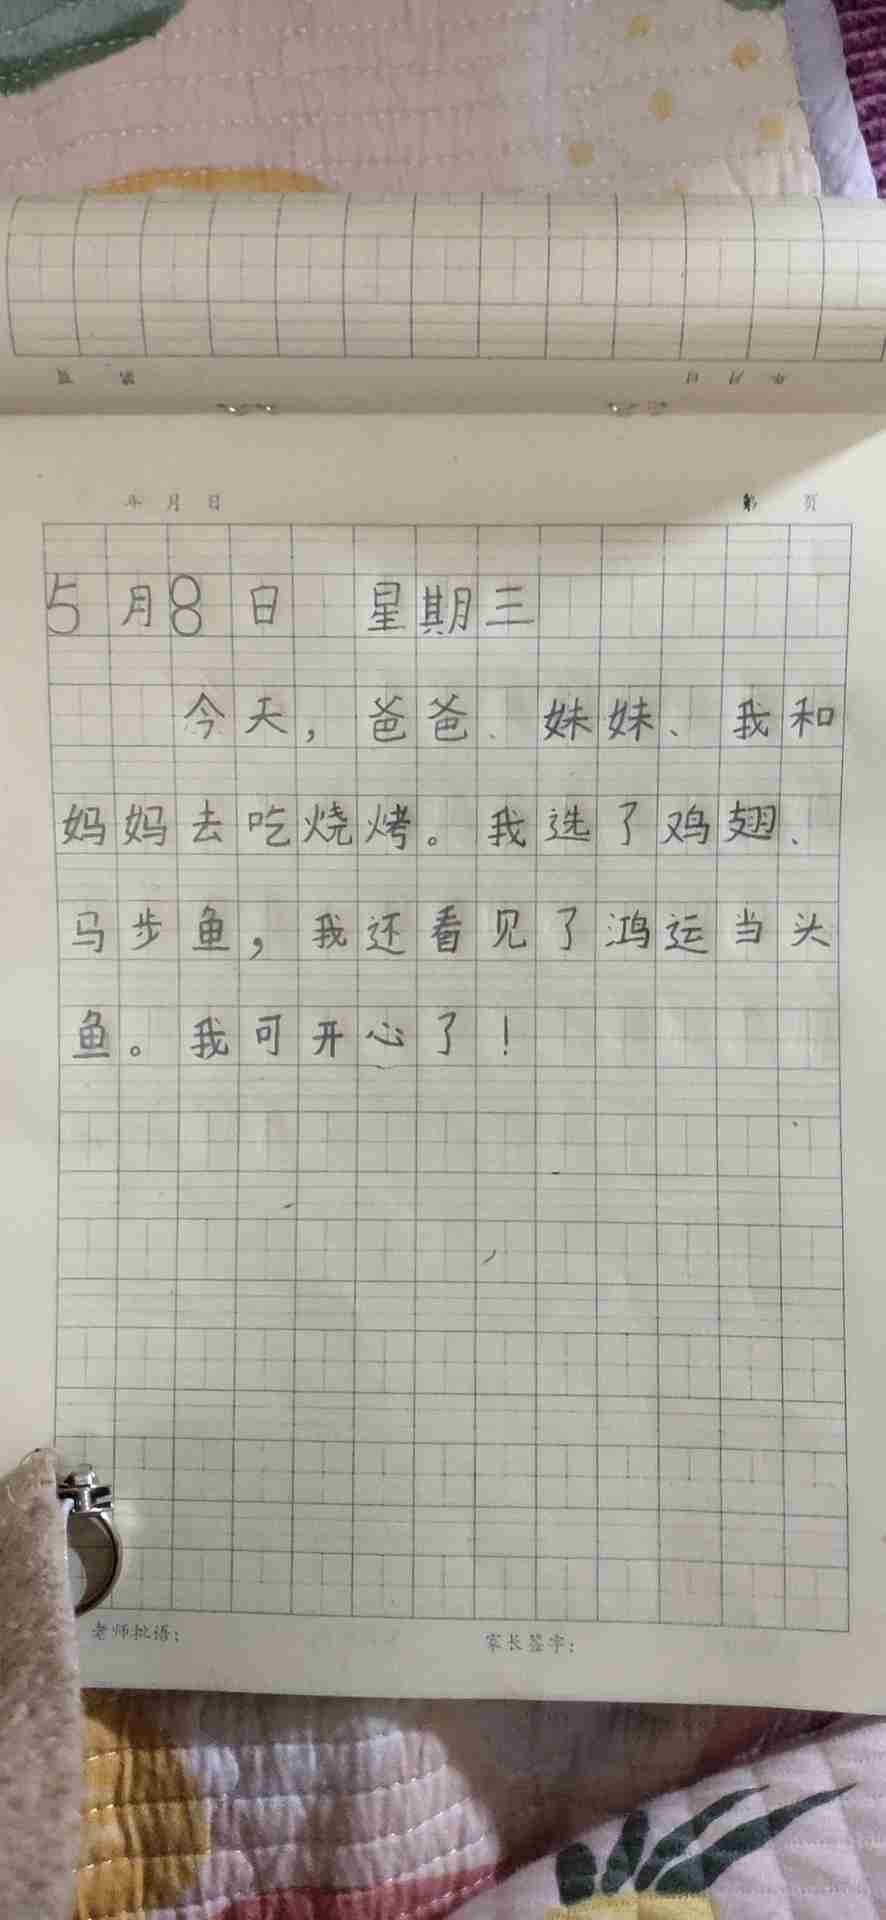 第 页
年 月 日
年 月 日
第 页
5月8日 星期三
今天，爸爸、妹妹、我和
妈妈去吃烧烤。我选了鸡翅、
马步鱼，我还看见了鸿运当头
鱼。我可开心了！
老师批语：
家长签字：